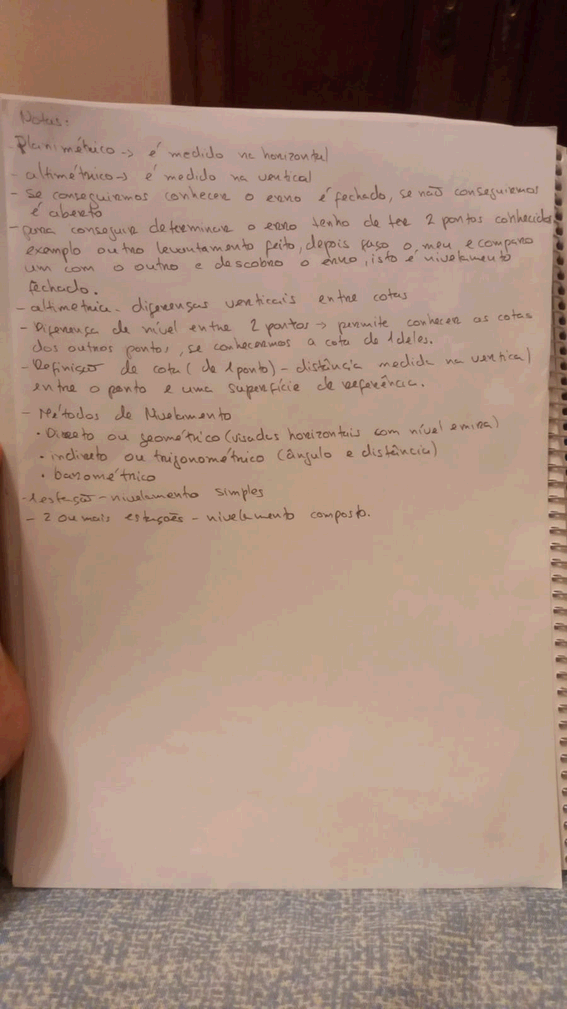 Notas:
- Planimétrico -> é medido na horizontal
- altimétrico -> é medido na vertical
- Se conseguirmos conhecer o erro é fechado, se não conseguirmos
é aberto
- para conseguir determinar o erro tenho de ter 2 pontos conhecidos
exemplo outro levantamento feito, depois faço o meu e comparo
um com o outro e descobro o erro, isto é nivelamento
fechado.
- altimetria - diferenças verticais entre cotas
- Diferença de nível entre 2 pontos -> permite conhecer as cotas
dos outros pontos, se conhecermos a cota de 1 deles.
- Definição de cota (de 1 ponto) - distância medida na vertical
entre o ponto e uma superfície de referência.
- Métodos de Nivelamento
• Direto ou geométrico (visadas horizontais com nível e mira)
• indireto ou trigonométrico (ângulo e distância)
• barométrico
- 1 estação - nivelamento simples
- 2 ou mais estações - nivelamento composto.